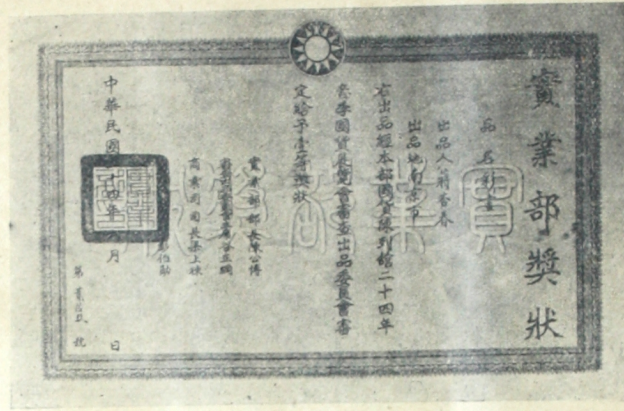 實業部獎狀
品名彩畫
出品人翁春
出品地南京市
右出品經本部國貨陳列館二十四年
季國貨展覽會審查出品委員會審
定給予壹等獎狀
實業部部長陳公博
商業司司長梁上棟
中華民國廿四年 月 日
第 號